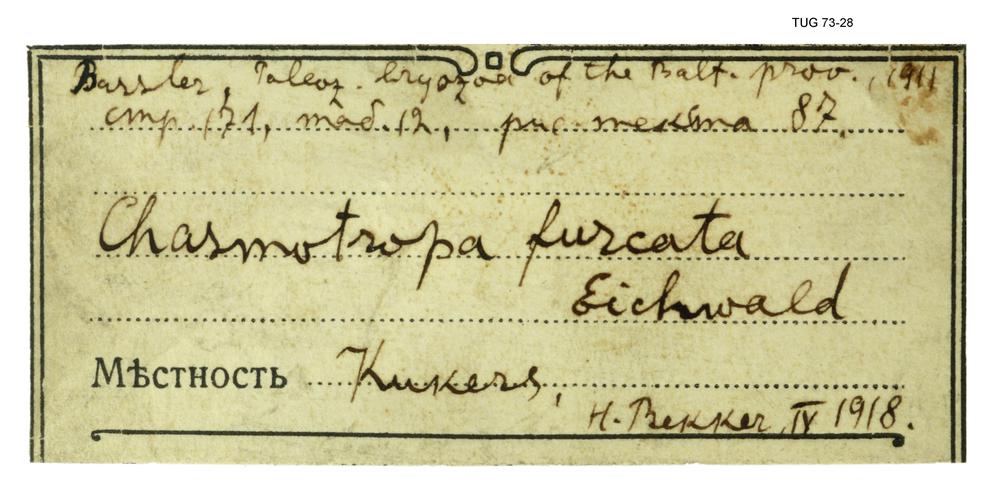 TUG 73-28
Bassler, Paleoz. bryozoa of the Balt. prov., 1911
стр. 171, таб. 12, рис текста 87.
Chasmotropa furcata
Eichwald
Мѣстность Kukers,
H. Bekker, IV 1918.